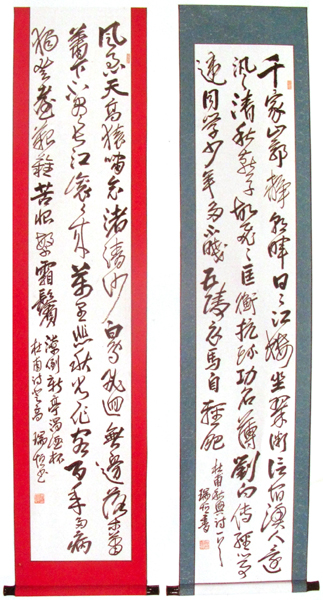 千家山郭靜朝暉日々江樓坐翠微信宿漁人還
汎々清秋燕子故飛々匡衡抗疏功名薄劉向傳經心事
違同学少年多不賤五陵衣馬自輕肥
杜甫秋興詩一首
風急天高猿嘯哀渚清沙白鳥飛迴無邊落木蕭
蕭下不盡長江滾々來萬里悲秋常作客百年多病
獨登臺艱難苦恨繁霜鬢
潦倒新亭濁酒杯
杜甫詩登高